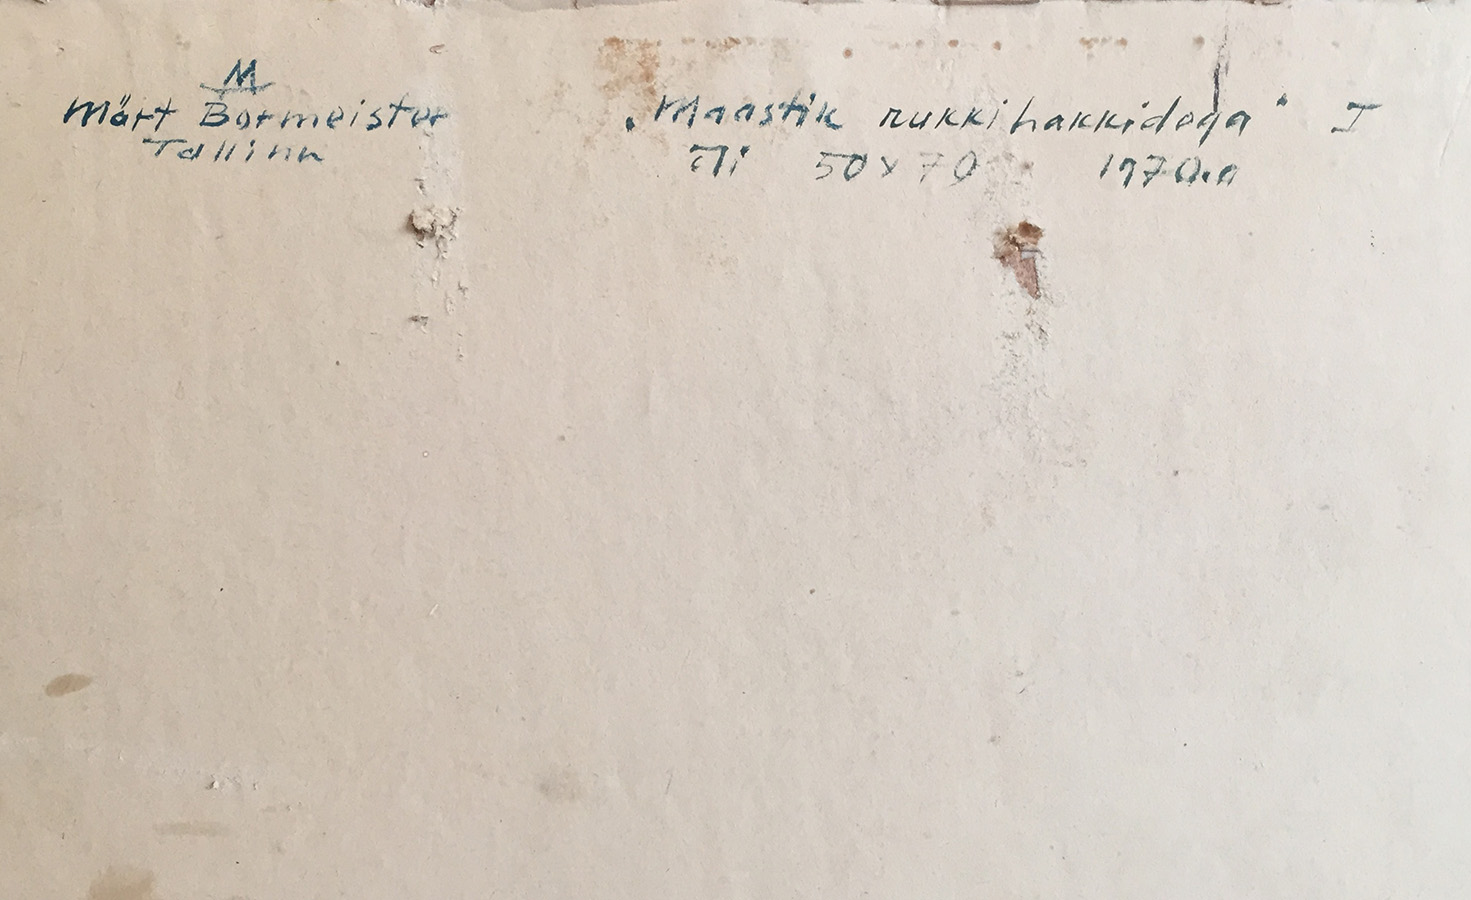 M
Märt Bormeister
Tallinn
„Maastik rukkihakkidega" I
Õli 50 x 70 1970.a